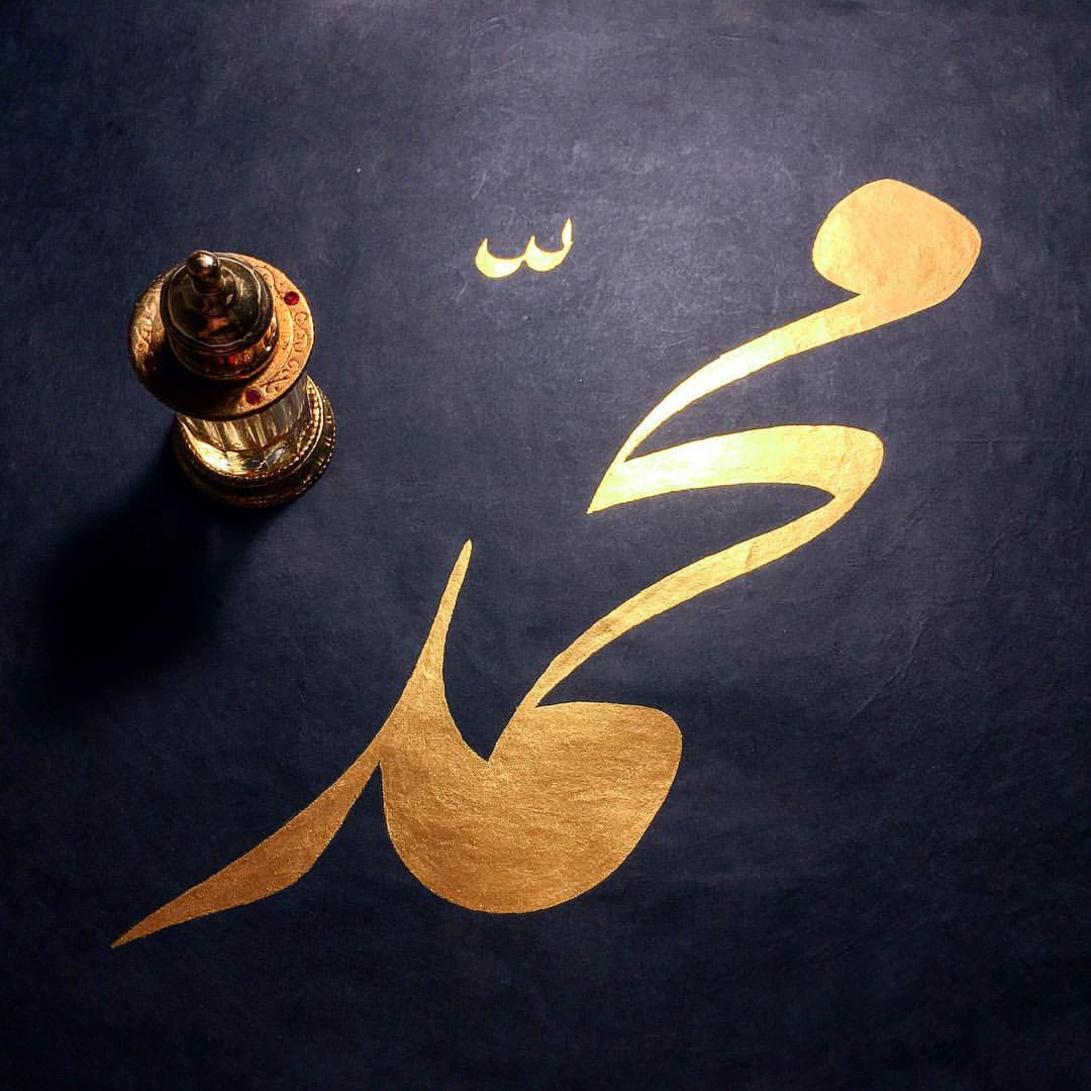 محمّد